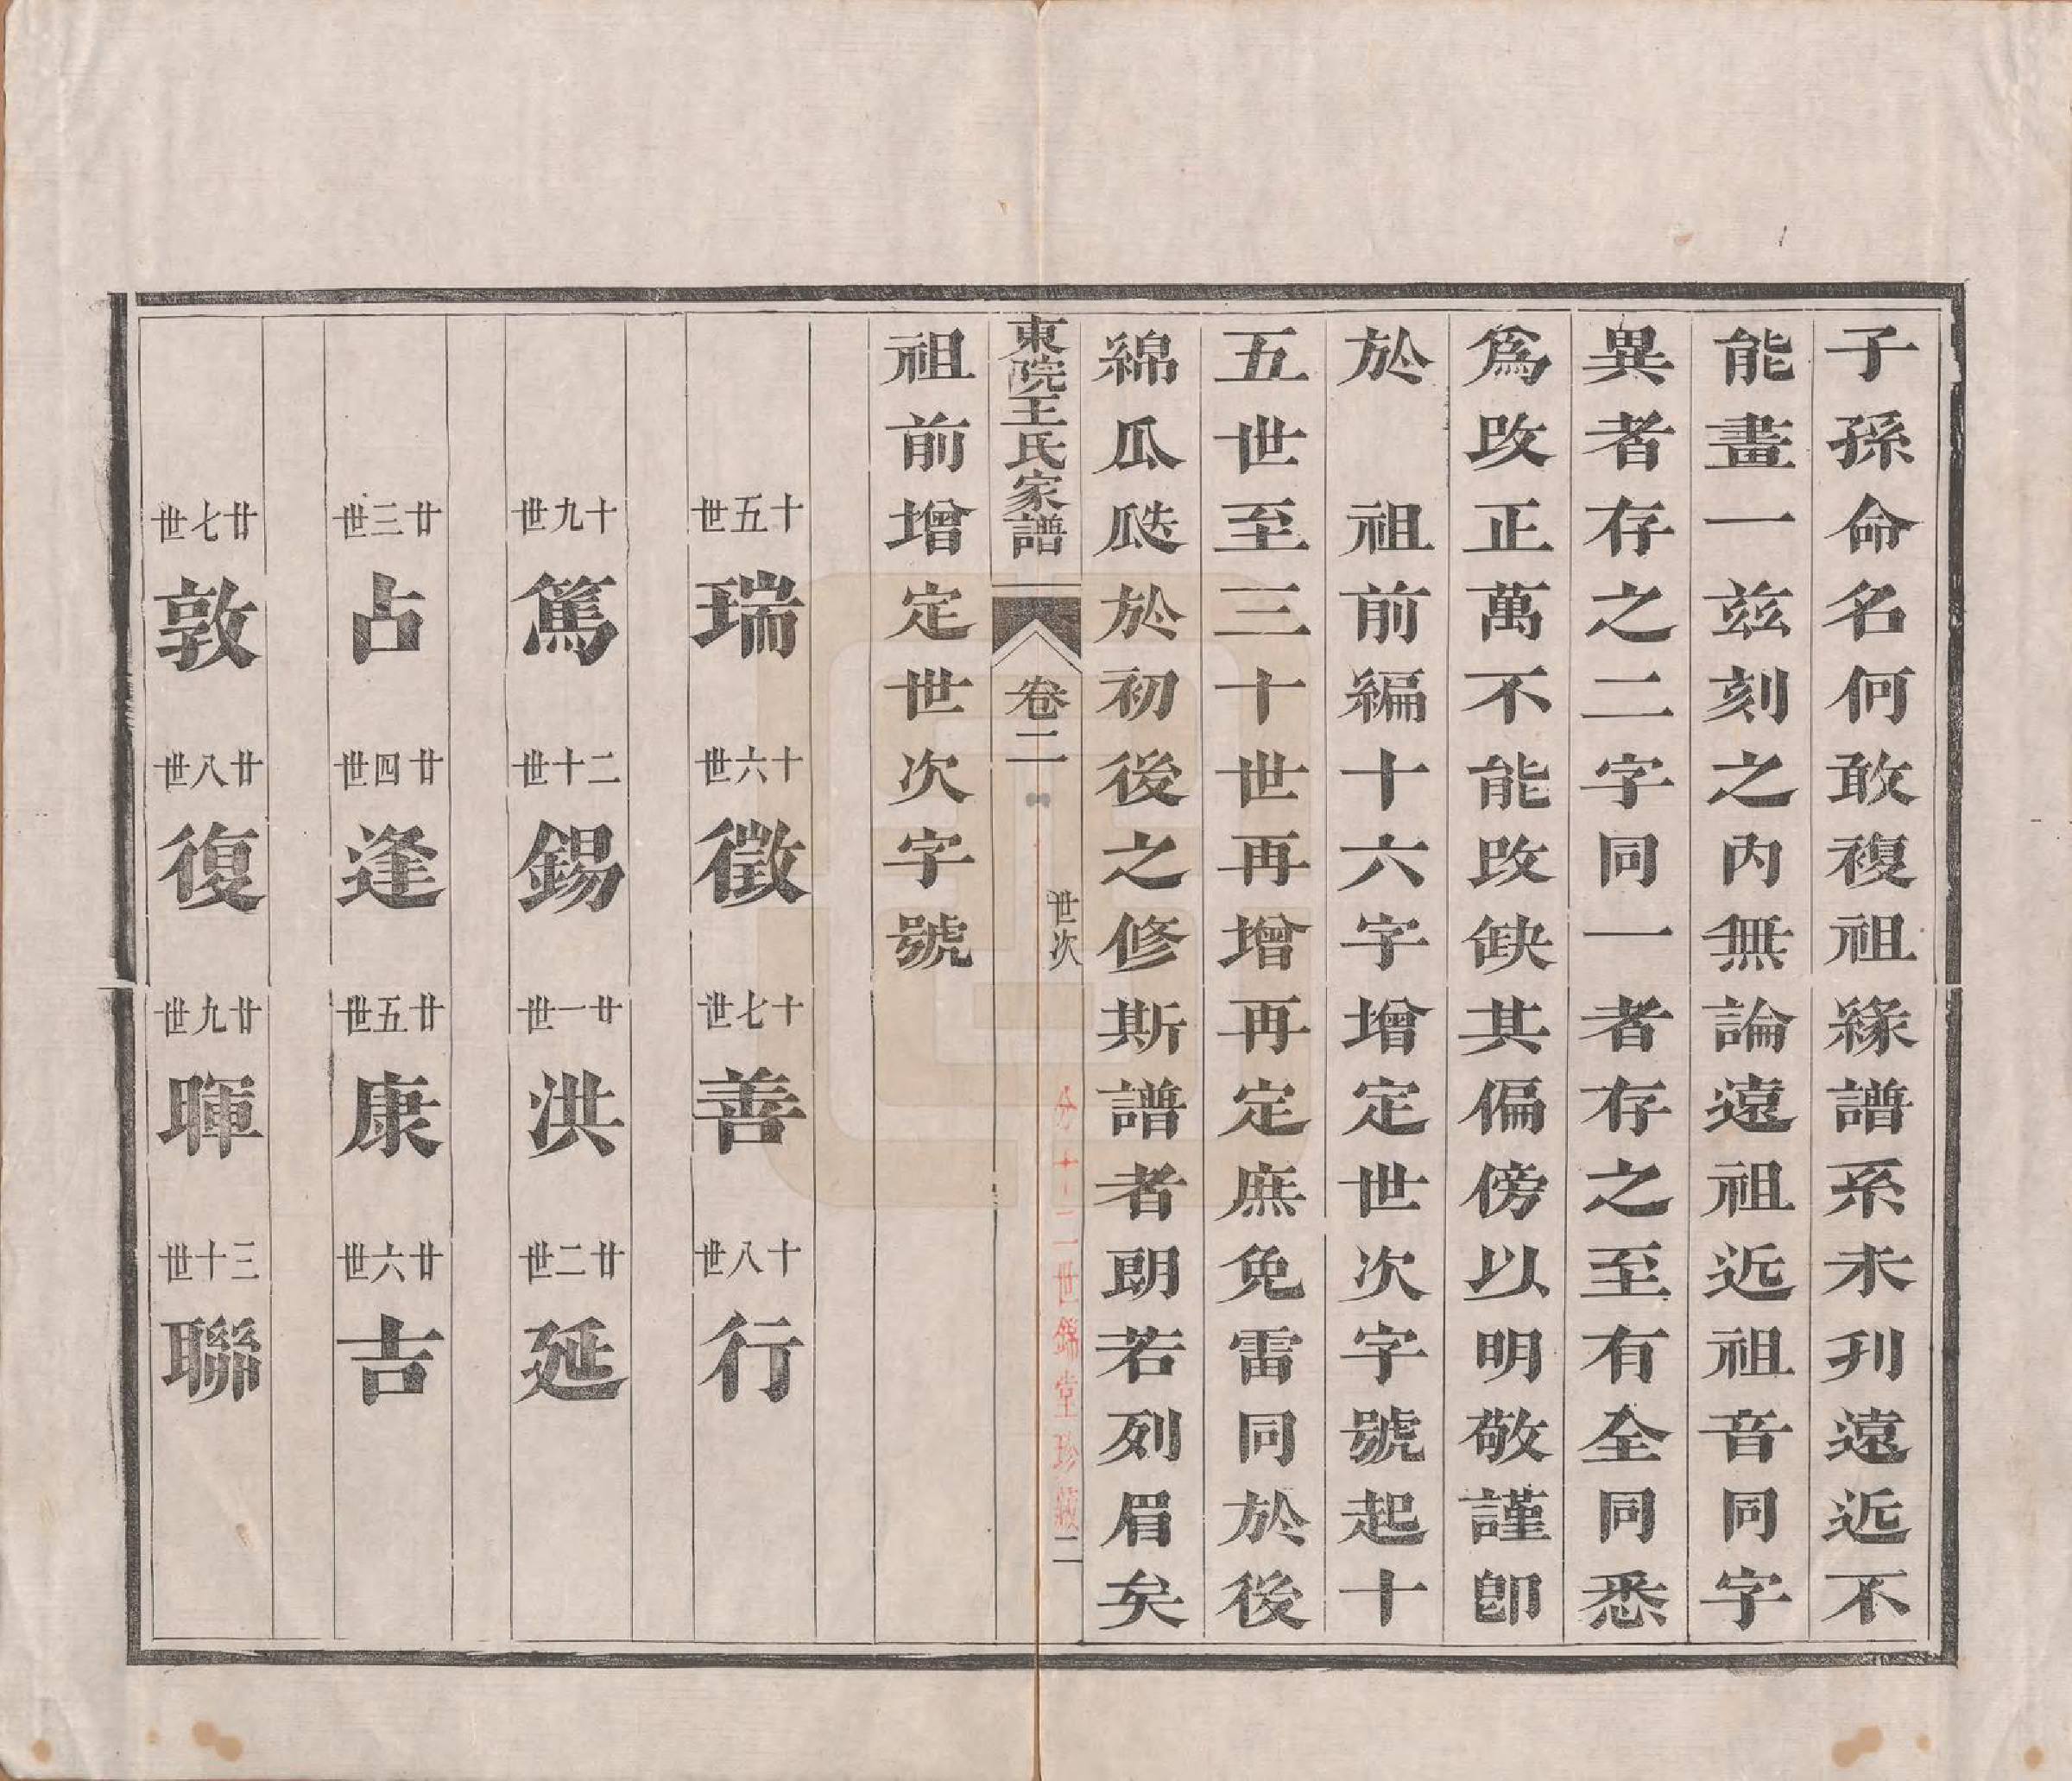 子孫命名何敢複祖緣譜系未刋遠近不
能畫一兹刻之內無論遠祖近祖音同字
異者存之二字同一者存之至有全同悉
爲改正萬不能改缺其偏傍以明敬謹卽
於　祖前編十六字增定世次字號起十
五世至三十世再增再定庶免雷同於後
綿瓜瓞於初後之修斯譜者朗若列眉矣
東院王氏家譜　卷二　世次　二
分十二世錦堂珍藏
祖前增定世次字號
十五世　瑞　十六世　徵　十七世　善　十八世　行
十九世　篤　二十世　錫　廿一世　洪　廿二世　延
廿三世　占　廿四世　逢　廿五世　康　廿六世　吉
廿七世　敦　廿八世　復　廿九世　暉　三十世　聯